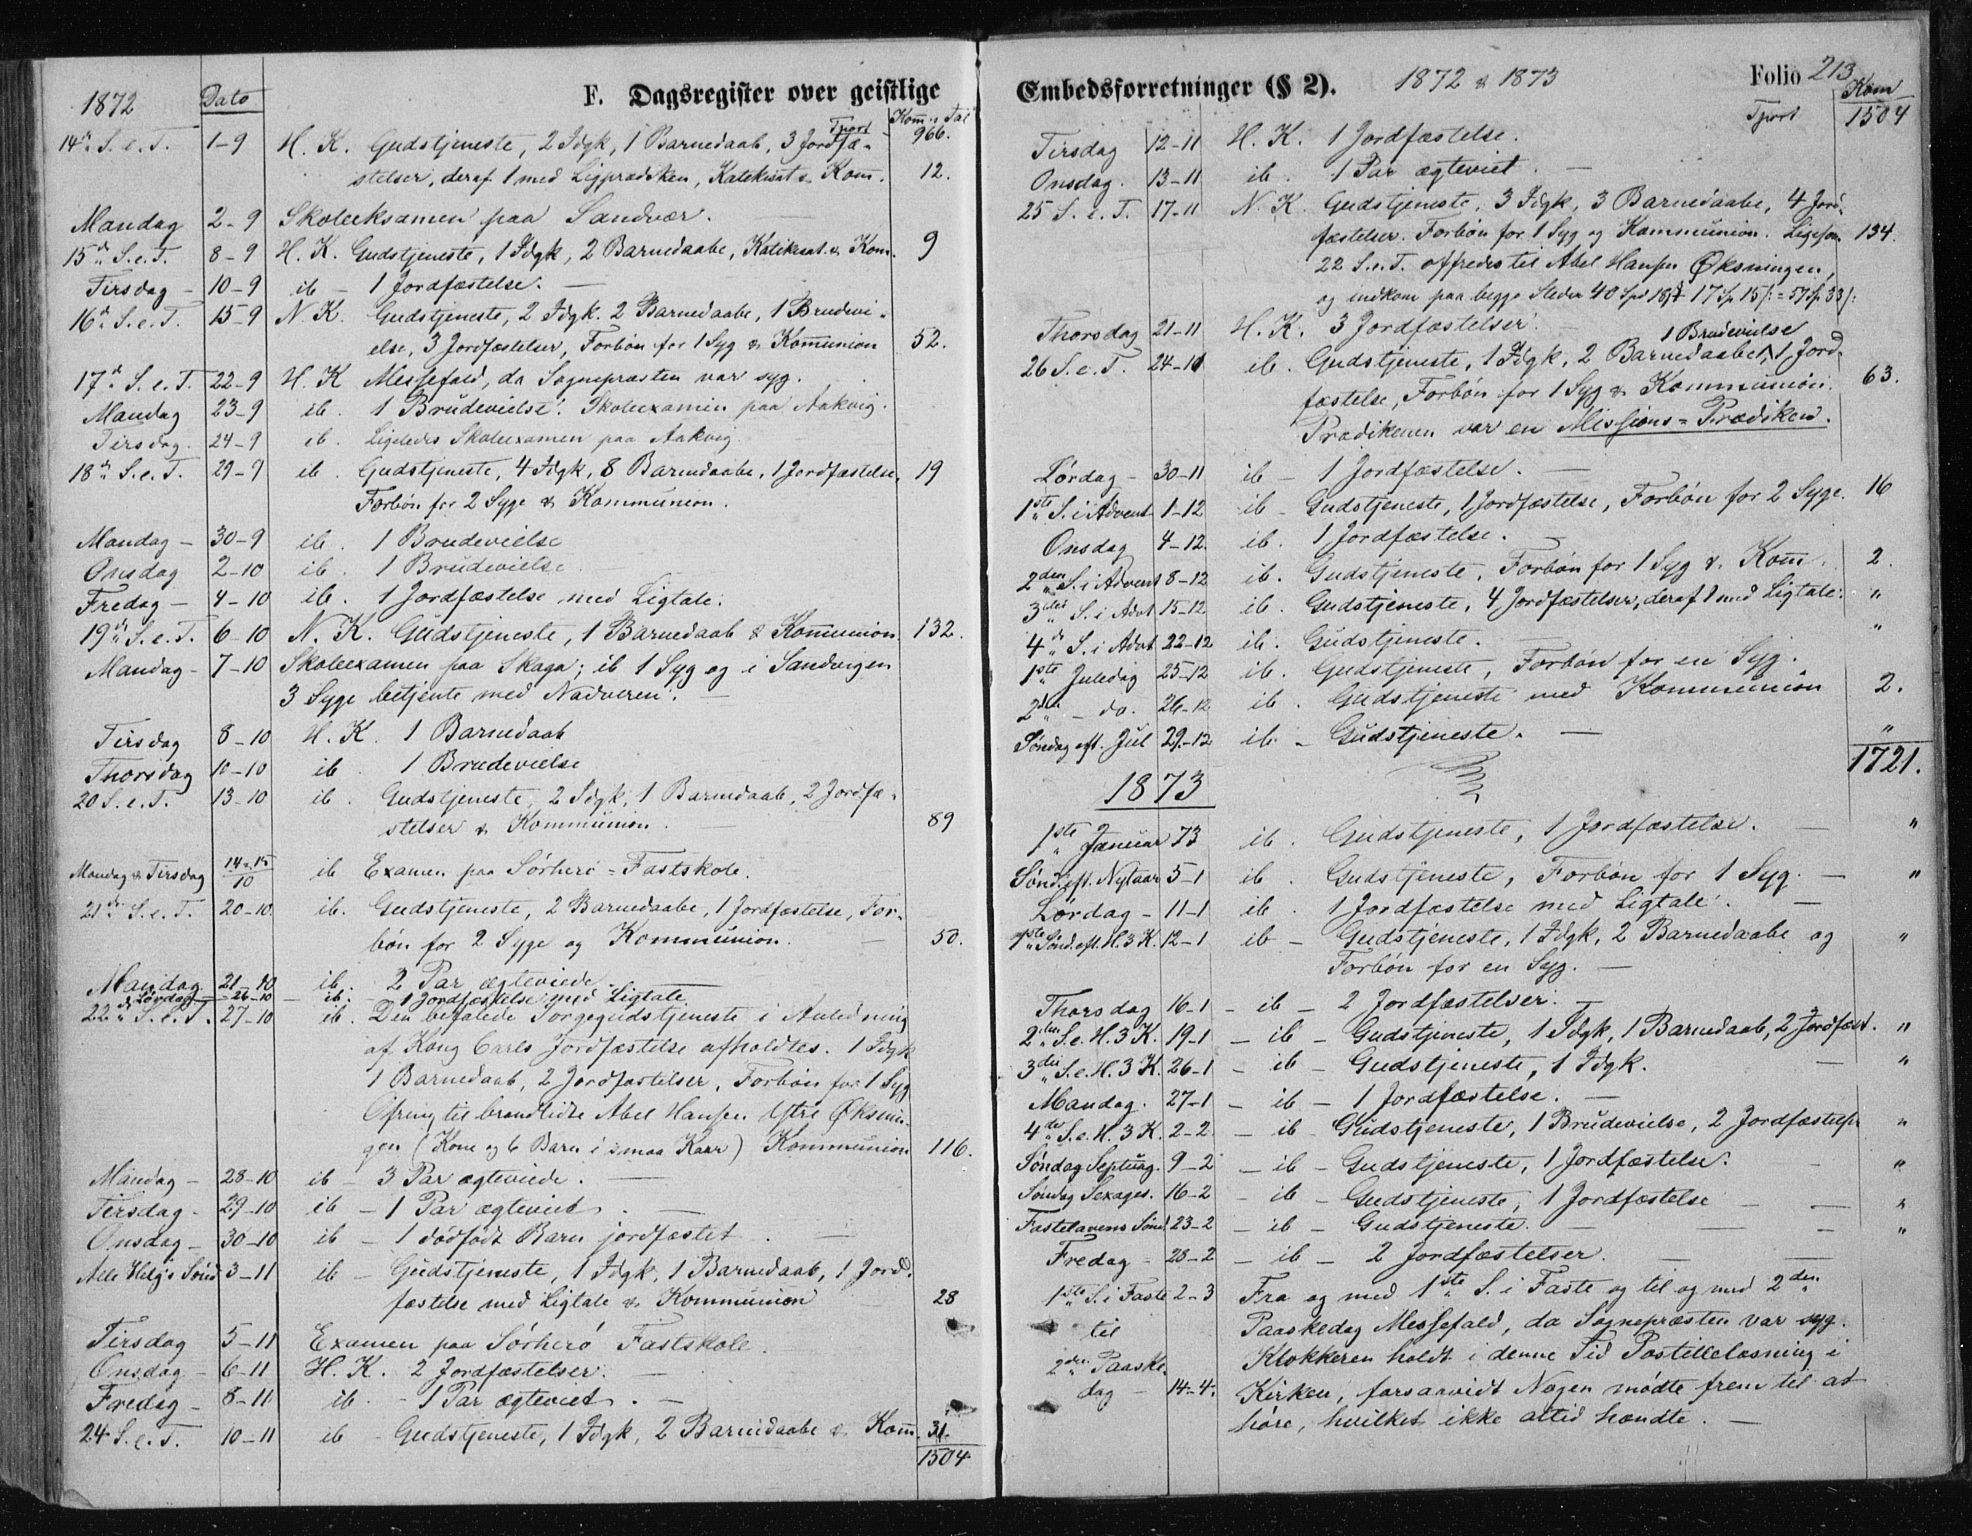 1872 Dato F. Dagsregister over geistlige Kom: Tal
Tport 966.
14de S. e. T. 1-9 H. K. Gudstjeneste, 2 Idgk, 1 Barnedaab, 3 Jordfæ-
stelser, deraf 1 med Ligprædiken, Katekisat & Kom. 12.
Mandag 2-9 Skoleeksamen paa Sandvær.
15de S. e. T. 8-9 H. K. Gudstjeneste, 1 Idgk, 2 Barnedaabe, Katikisat. & Kom. 9
Tirsdag - 10-9 ib - 1 Jordfæstelse. -
16de S. e. T. 15-9 N K. Gudstjeneste, 2 Idgk. 2 Barnedaabe, 1 Brudevi-
else, 3 Jordfæstelser, Forbøn for 1 Syg & Kommunion 52.
17de S. e. T. 22-9 H. K Messefald, da Sognepræsten var syg.
Mandag 23-9 ib. 1 Brudevielse. Skoleexamen paa Aakvig.
Tirsdag. 24-9 ib. Ligeledes Skoleexamen paa Aakvig
18de S. e. T. 29-9 ib. Gudstjeneste, 4 Idgk, 8 Barnedaabe, 1 Jordfæstelse, 19
Forbøn for 2 Syge & Kommunion.
Mandag - 30-9 ib. 1 Brudevielse
Onsdag 2-10 ib. 1 Brudevielse
Fredag - 4-10 ib. 1 Jordfæstelse med Ligtale.
19de S. e. T. 6-10 N. K. Gudstjeneste, 1 Barnedaab & Kommunion 132.
Mandag - 7-10 Skoleexamen paa Skaga; ib 1 Syg og i Sandvigen
3 Syge betjente med Nadveren. -
Tirsdag 8-10 H. K. 1 Barnedaab
Thorsdag 10-10 ib. 1 Brudevielse
20 S. e. T. 13-10 ib. Gudstjeneste, 2 Idgk, 1 Barnedaab, 2 Jordfæ-
stelser & Kommunion. - 89
Mandag & Tirsdag 14 & 15/10 ib Examen paa Sørherø-Fastskole.
21de S. e. T. 20-10. ib. Gudstjeneste, 2 Barnedaabe, 1 Jordfæstelse, For-
bøn for 2 Syge og Kommunion. - 50.
Mandag. 21-10 ib. 2 Par ægteviede. -
Lørdag - 26-10 - ib. - 1 Jordfæstelse med Ligtale
22de S. e. T. 27-10 ib. Den befalede Sørgegudstjeneste i Anledning
af Kong Carls Jordfæstelse afholdtes. 1 Idgk
1 Barnedaab, 2 Jordfæstelser, Forbøn for 1 Syg
Ofring til brandlidte Abel Hansen Ytre Øksnin-
gen (Kone og 6 Børn i smaa Kaar) Kommunion 116.
Mandag - 28-10 ib - 3 Par ægteviede. -
Tirsdag - 29-10 ib - 1 Par ægteviet. -
Onsdag - 30-10 ib - 1 dødfødt Barn jordfæstet. -
Alle Helgs Sønd 3-11 ib - Gudstjeneste, 1 Idgk, 1 Barnedaab, 1 Jord-
fæstelse med Ligtale & Kommunion 28
Tirsdag 5-11 Examen paa Sørherø Fastskole.
Onsdag - 6-11 H. K. 2 Jordfæstelser. -
Fredag - 8-11 ib. - 1 Par ægteviet. -
24 S. e. T. 10-11 ib - Gudstjeneste, 1 Idgk, 2 Barnedaabe & Kom. 31.
1504
Embedsforretninger (§ 2). 1872 & 1873 Folio 213
Kom
Tport 1504
Tirsdag 12-11 H. K. 1 Jordfæstelse.
Onsdag. 13-11 ib. 1 Par ægteviet. -
25 S. e. T. 17-11 N. K. Gudstjeneste, 3 Idgk, 3 Barnedaabe, 4 Jord-
fæstelser. Forbøn for 1 Syg og Kommunion. Ligesom 134.
22 S. e. T. offredes til Abel Hansen Øksningen,
og indkom paa begge Steder 40 Spd 18 17 Sp 15 = 57 Sp 33
Thorsdag 21-11 H. K. 3 Jordfæstelser.
1 Brudevielse
26 S. e. T. 24-11 ib. Gudstjeneste, 1 Idgk, 2 Barnedaabe, 1 Jord-
fæstelse, Forbøn for 1 Syg & Kommunion. 63.
Prædikenen var en Missions-Prædiken.
Lørdag - 30-11 ib - 1 Jordfæstelse. -
1ste S. i Advent 1-12 ib - Gudstjeneste, 1 Jordfæstelse, Forbøn for 2 Syge. 16
Onsdag 4-12. ib. 1 Jordfæstelse.
2den S. i Advent 8-12 ib. Gudstjeneste, Forbøn for 1 Syg & Kom. 2.
3die S. i Advt 15-12 ib. Gudstjeneste, 4 Jordfæstelser, deraf 1 med Ligtale. "
4de S. i Advt 22-12 ib. Gudstjeneste. - "
1ste Juledag 25-12 ib. Gudstjeneste, Forbøn for en Syg.
2den - do. 26-12 ib. Gudstjeneste med Kommunion 2.
Søndag eft. Jul 29-12 ib. - Gudstjeneste. - "
1721.
1873
1ste Januar 73 ib. Gudstjeneste, 1 Jordfæstelse. - "
Sønd. eft. Nytaar 5-1 ib. Gudstjeneste, Forbøn for 1 Syg. - "
Lørdag - 11-1 ib. 1 Jordfæstelse med Ligtale. -
1ste Sønd. eft. H. 3 K. 12-1 ib - Gudstjeneste, 1 Idgk, 2 Barnedaabe og "
Forbøn for en Syg. -
Thorsdag 16-1 - ib - 2 Jordfæstelser. -
2den S. e. H. 3 K. 19-1 - ib - Gudstjeneste, 1 Idgk, 1 Barnedaab, 2 Jordfæst. "
3die S. e. H. 3 K. 26-1 - ib - Gudstjeneste, 1 Idgk. - "
Mandag. 27-1 - ib - 1 Jordfæstelse. -
4de S. e. H. 3 K. 2-2. - ib - Gudstjeneste, 1 Brudevielse, 2 Jordfæstelser "
Søndag Septuag. 9-2 - ib - Gudstjeneste, 1 Jordfæstelse. "
Søndag Sexages. 16-2 - ib - Gudstjeneste, 1 Jordfæstelse - "
Fastelavens Sønd. 23-2 - ib - Gudstjeneste. - "
Fredag - 28-2 - ib - 2 Jordfæstelser. -
1ste S. i Faste 2-3 Fra og med 1ste S. i Faste og til og med 2den
til Paaskedag Messefald, da Sognepræsten var syg.
2den Paaske- Klokkeren holdt i denne Tid Postillelæsning i
dag - 14-4. Kirken, forsaavidt Nogen mødte frem til at
høre, hvilket ikke altid hændte. -